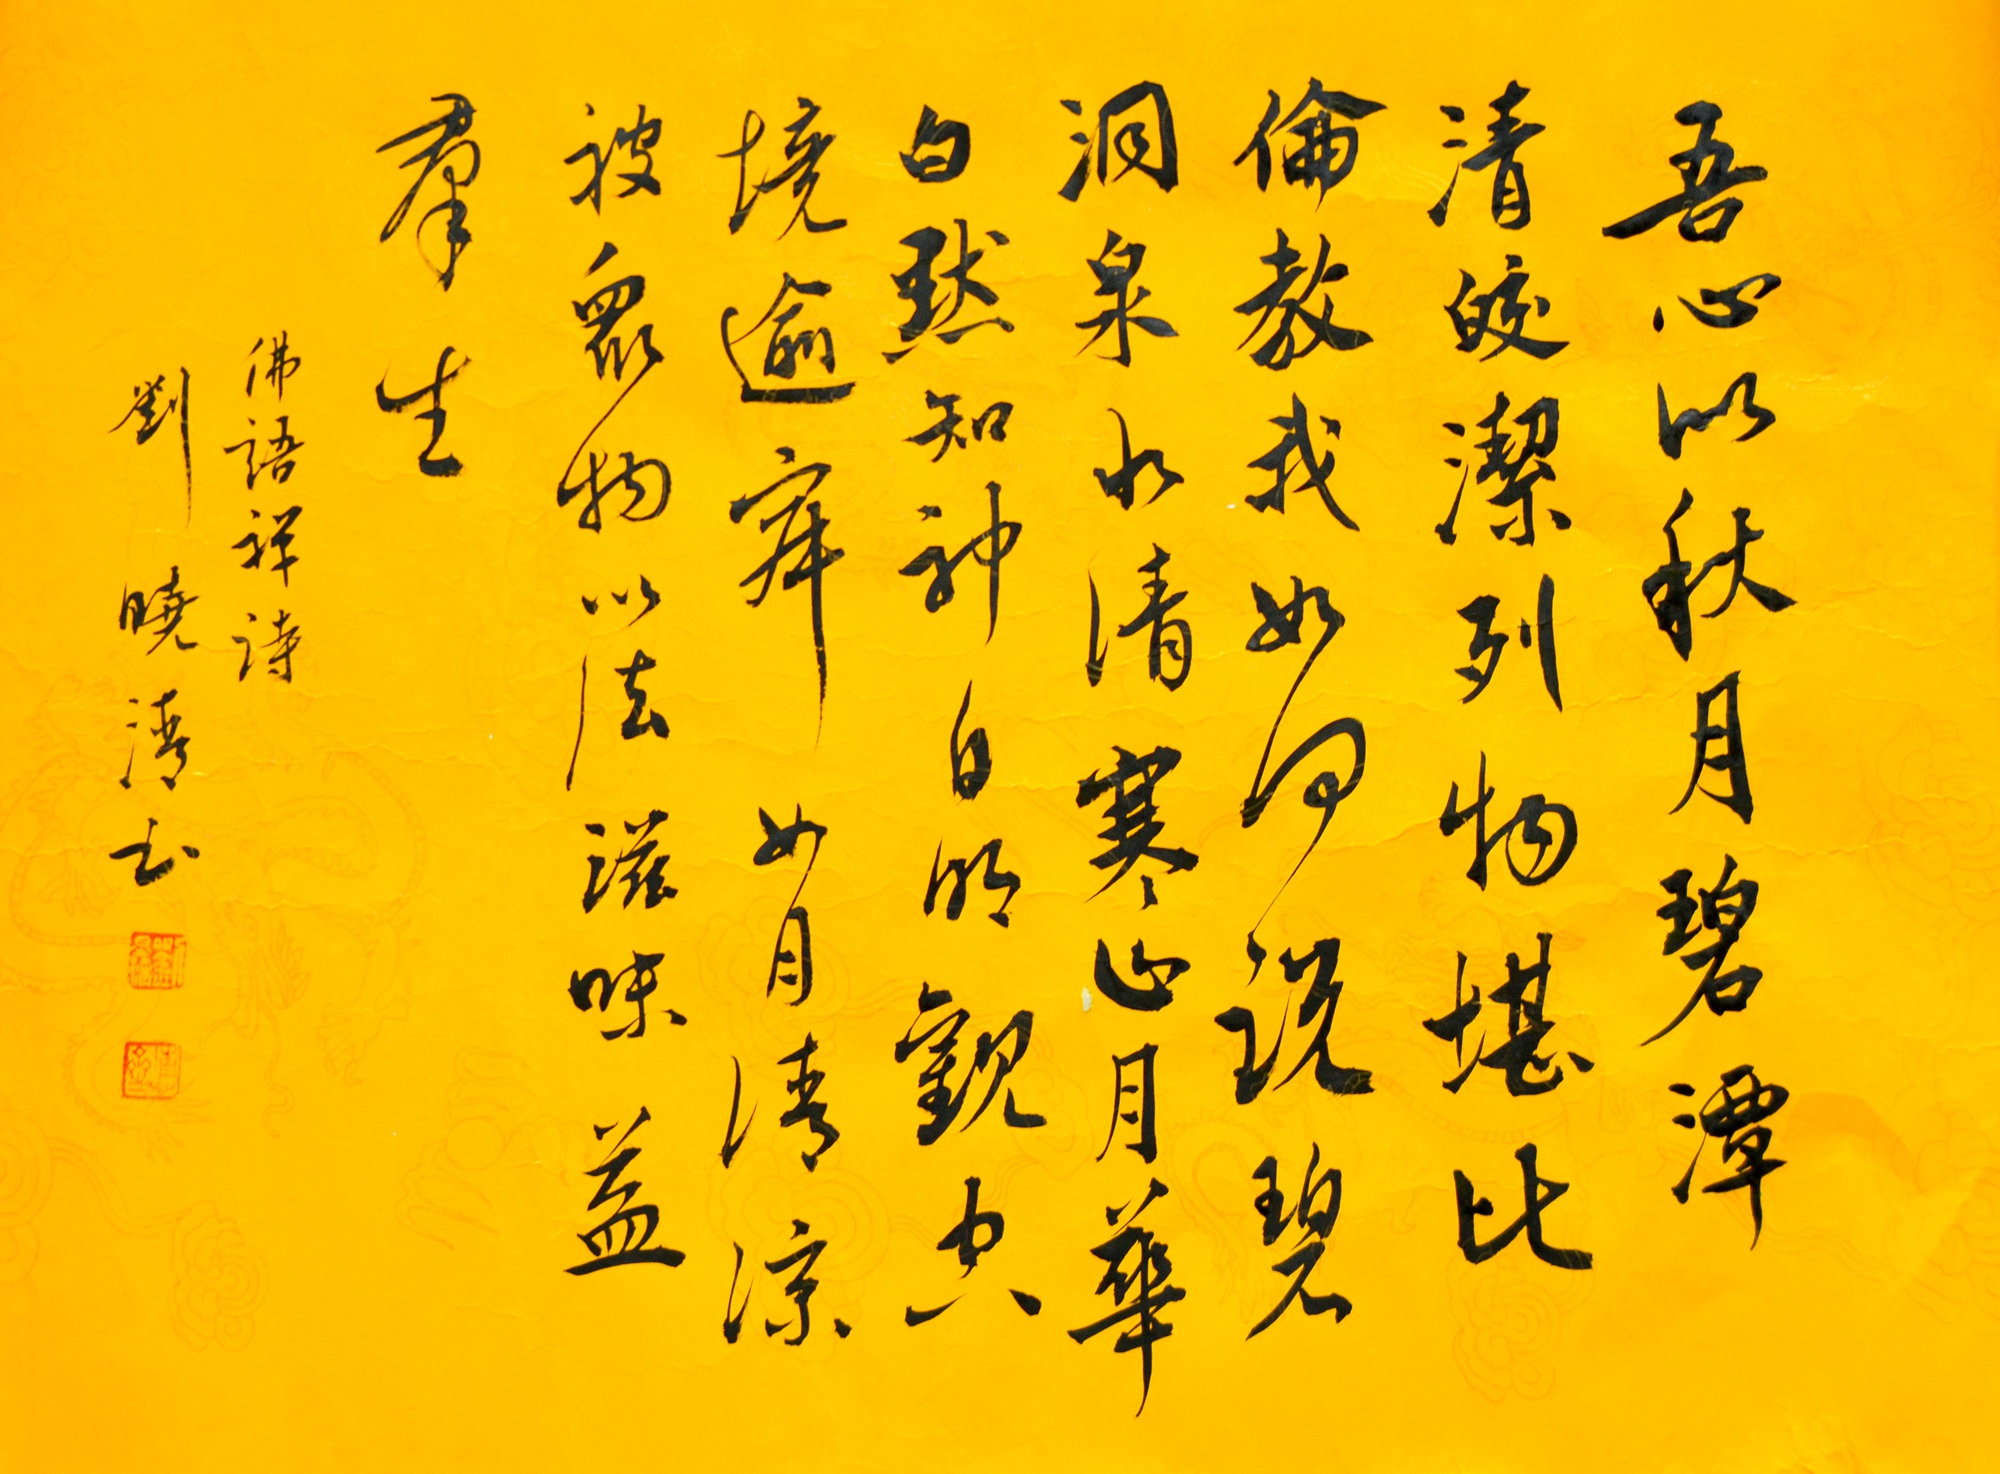 吾心以秋月碧潭
清皎潔列物堪比
倫教我如何説碧
洞泉水清寒山月華
白默知神自明觀空
境逾寂如月清涼
被眾物以法滋味益
羣生
佛語祥詩
劉曉清書